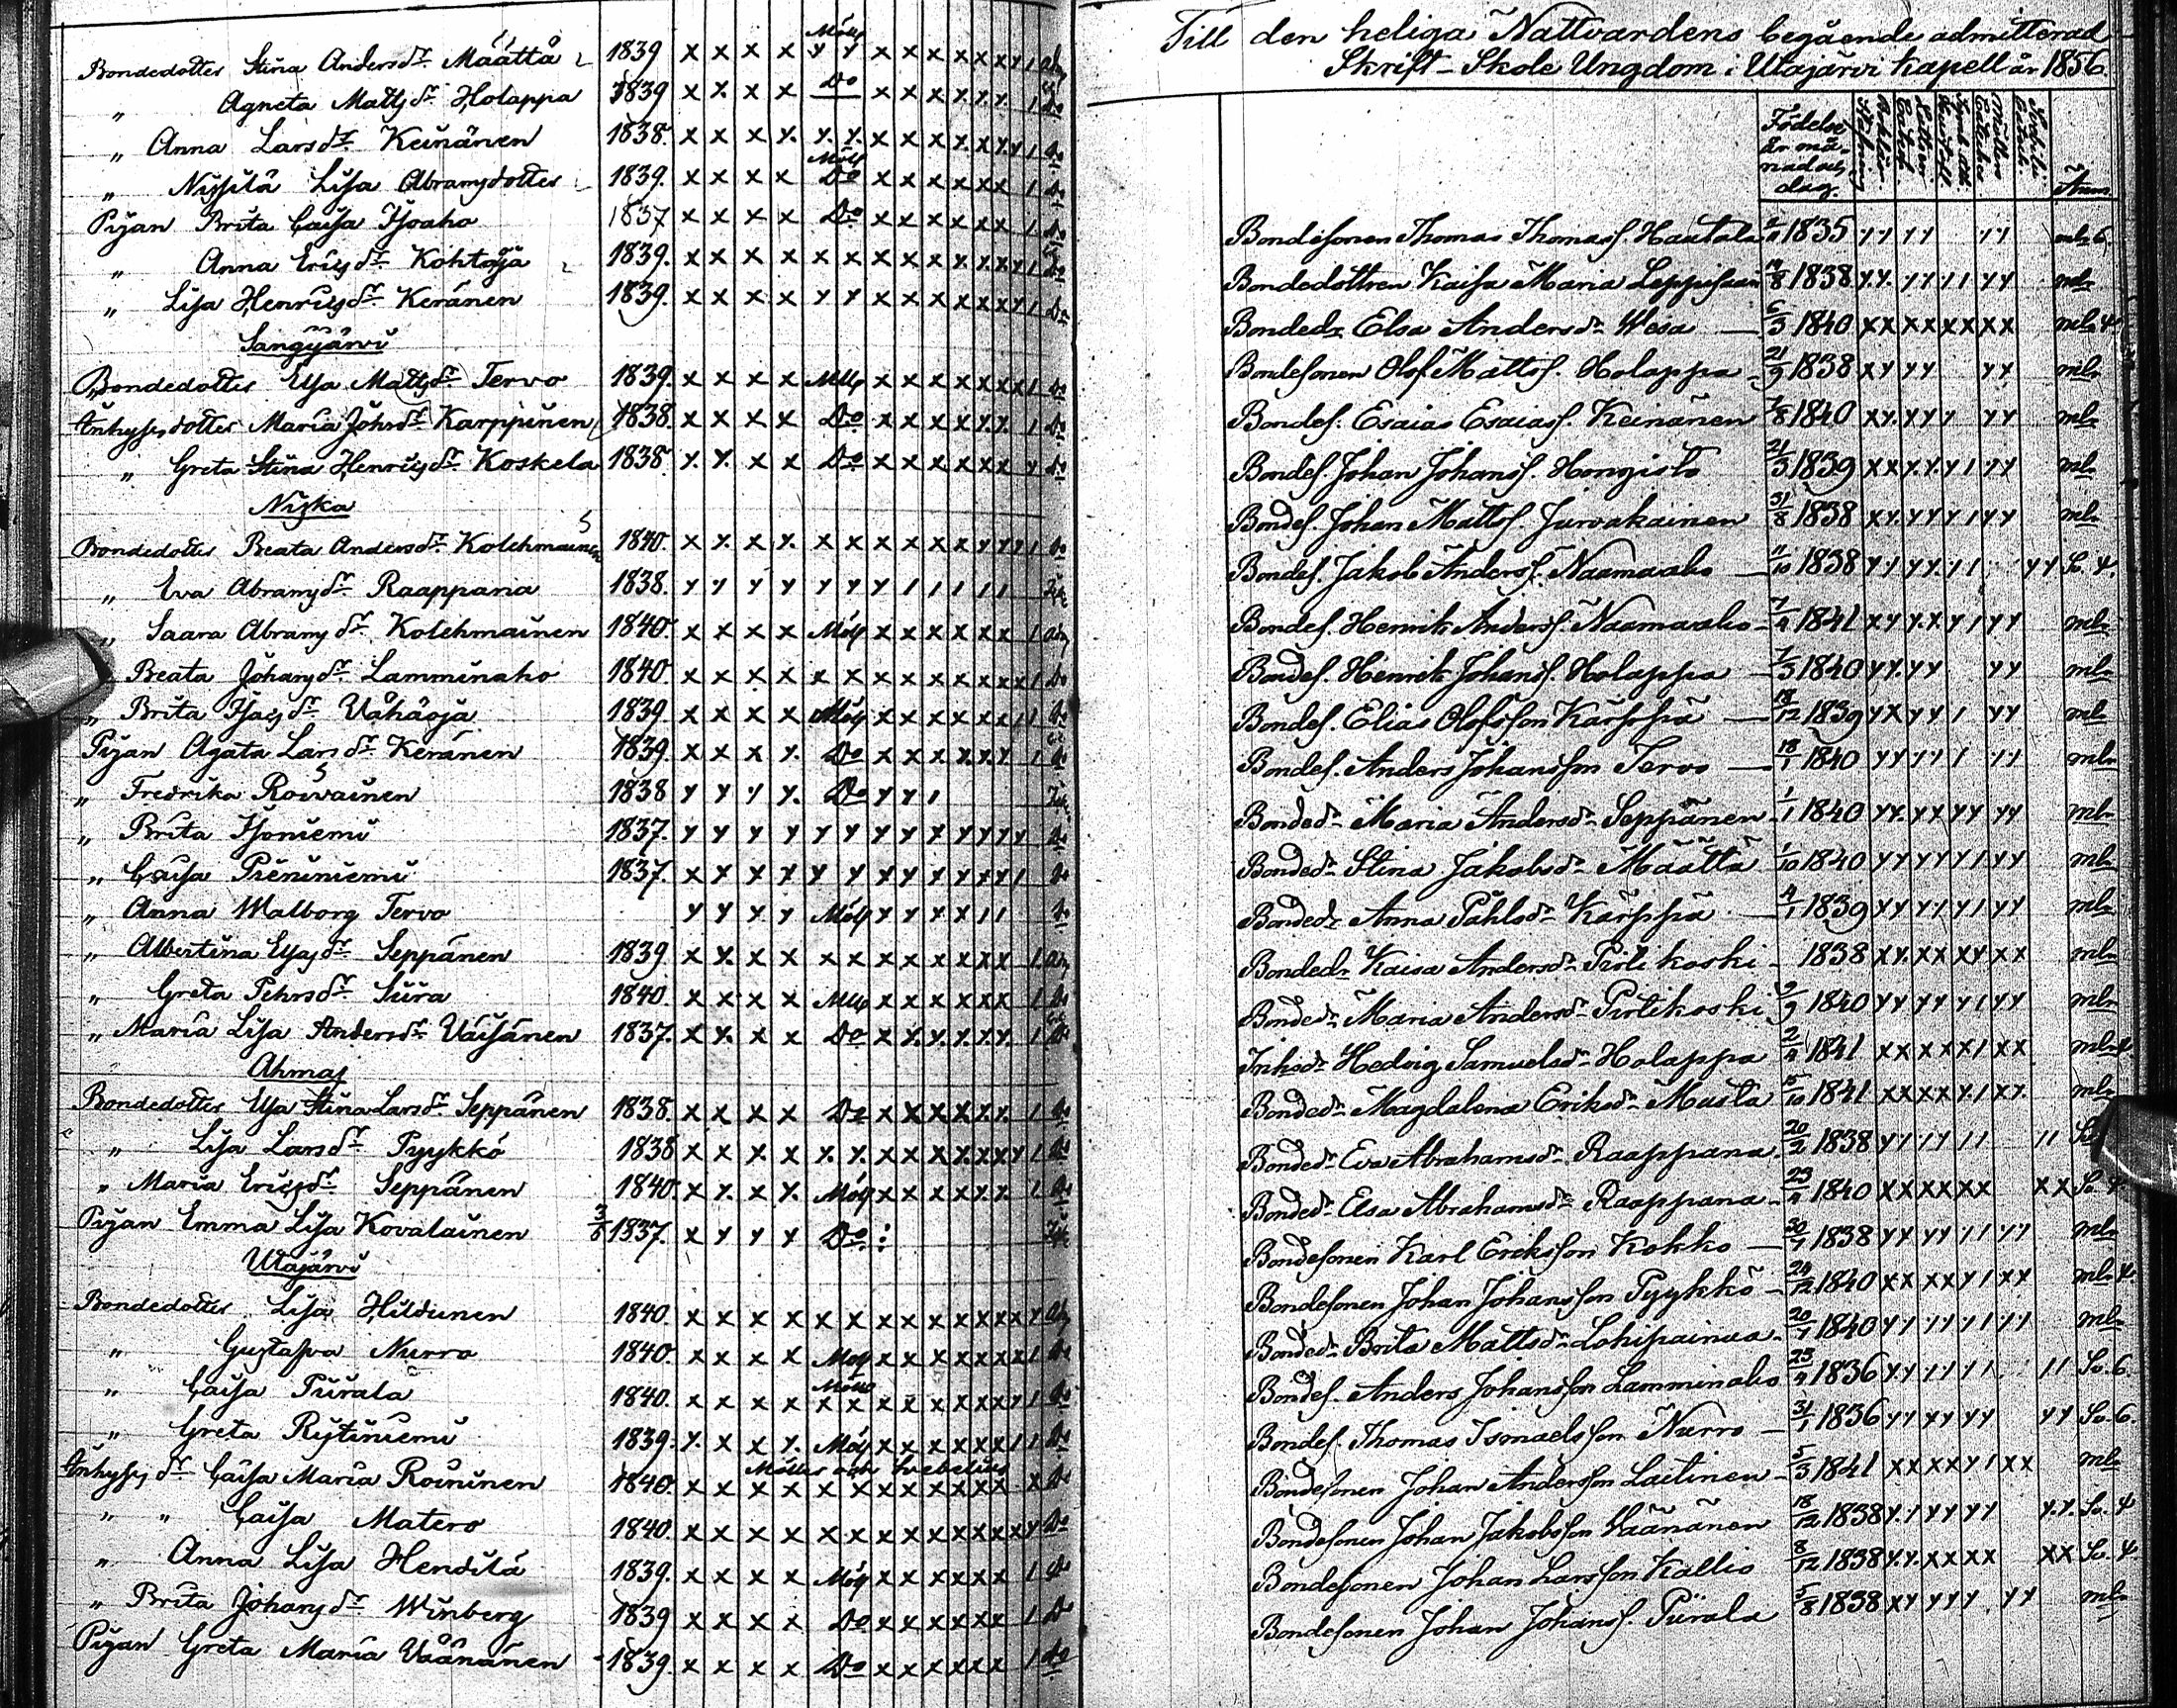 Bondedotter Stina Andersdr Määttä 1839 x x x x Möll y y x x x x x x y 1 adm
" Agneta Mattsdr Holappa 1839 x x x x Do x x x x x x 1 Do
" Anna Larsdr Keinänen 1838. x x x x y y x x x x x x y 1 Do
" Nissilä Lisa Abramsdotter 1839. x x x x Möll Do x x x x x x 1 Do
Pigan Brita Caisa Isoaho 1837 x x x x Do x x x x x x 1 Do
" Anna Ericsdr Kohtoja 1839. x x x x x x x x x x x x y 1 Do
" Lisa Henricsdr Keränen 1839. x x x x y y x x x x x x y 1 Do
Sangijärvi
Bondedotter Elsa Mattsdr Tervo 1839. x x x x Möll x x x x x x x 1 Do
Inhyses dotter Maria Johsdr Karppinen 1838. x x x x Do x x x x x x 1 Do
" Greta Stina Henricsdr Koskela 1838 x x x x Do x x x x x x y Do
Niska
Bondedotter Beata Andersdr Kolehmainen 1840. x x x x x x x x x x y y y 1 Do
" Eva Abramsdr Raappana 1838. y y y y y y y 1 1 1 1 1
" Saara Abramsdr Kolehmainen 1840. x x x x Möll x x x x x x 1 adm
" Beata Johansdr Lamminaho 1840 x x x x x x x x x x x x x 1 Do
" Brita Isacsdr Vähäoja 1839. x x x x Möll x x x x x x 1 1 Do
Pigan Agata Larsdr Keränen 1839. x x x x Do x x x x x x 1 Do
" Fredrika Roivainen 1838 y y y y Do y y 1
" Brita Isoniemi 1837. y y y y y y y y y y y y y Do
" Caisa Pieniniemi 1837. x x x x y y y y y y y y 1 Do
" Anna Walborg Tervo y y y y Möll y y y x 1 1 Do
" Albertina Elsasdr Seppänen 1839 x x x x x x x x x x x x 1 adm
" Greta Pehrsdr Siira 1840. x x x x Möll x x x x x x 1 Do
" Maria Lisa Andersdr Väisänen 1837. x x x x Do x x x x x x 1 Do
Ahmas
Bondedotter Elsa Stina Larsdr Seppänen 1838. x x x x Do x x x x x x 1 Do
" Lisa Larsdr Pyykkö 1838 x x x x x x x x x x x x y 1 Do
" Maria Ericsdr Seppänen 1840. x x x x Möll x x x x x x 1 Do
Pigan Emma Lisa Kovalainen 3/8 1837. x y y y Do :
Utajärvi
Bondedotter Lisa Hiltunen 1840. x x x x x x x x x x x x x y adm
" Gustafva Nurro 1840. x x x x Möll x x x x x x x 1 Do
" Caisa Piirala 1840. x x x x Möll x x x x x x x x y 1 Do
" Greta Rytiniemi 1839. x x x x Möll x x x x x x 1 1 Do
Inhyses dr Caisa Maria Roininen 1840. Möller och x x x x x x x x x x x x x Do
" " Caisa Matero 1840. x x x x x x x x x x x x x y Do
" Anna Lisa Hendilä 1839. x x x x Möll x x x x x x 1 Do
" Brita Johansdr Winberg 1839 x x x x Do x x x x x x 1 Do
Pigan Greta Maria Väänänen 1839. x x x x Do x x x x x x 1 Do
Till den heliga Nattvardens begående admitterad
Skrift-Skole Ungdom i Utajärvi kapell år 1856.
Födelse år månad och dag. Anm.
Bondesonen Thomas Thomass. Haatala 1835 y 1 y 1 1 1 mlr 6.
Bondedottren Kaisa Maria Leppisaari 19/8 1838 y y 1 1 1 1 y y mlr
Bondedr Elsa Andersdr Wesa 6/3 1840 x x x x x x x x mlr 4
Bondesonen Olof Mattss. Holappa 21/9 1838 x y y y y y mlr
Bondes. Esaias Esaiass. Keinänen 7/8 1840 x y y y y y y mlr
Bondes. Johan Johanss. Hongisto 21/3 1839 x x y y y 1 y y mlr
Bondes. Johan Mattss. Jurvakainen 31/8 1838 x y y y y 1 y y mlr
Bondes. Jakob Anderss. Naamaaho 11/10 1838 y 1 y y y 1 y y Sv. 4.
Bondes. Henrik Anderss. Naamaaho 7/4 1841 x y y x y 1 y y mlr
Bondes. Henrik Johanss. Holappa 7/3 1840 y y y y y y mlr
Bondes. Elias Olofsson Kärppä 18/12 1839 y x y y 1 y y mlr
Bondes. Anders Johansson Tervo 18/1 1840 y y y 1 1 1 1 mlr
Bondedr Maria Andersdr Seppänen 1/1 1840 y y y x y y y y mlr
Bondedr Stina Jakobsdr Määttä 1/10 1840 y y y y y 1 y y mlr
Bondedr Anna Påhlsdr Kärppä 4/1 1839 y y y 1 y 1 y y mlr
Bondedr Kaisa Andersdr Pirtikoski 1838 x x x x x y x x mlr
Bondedr Maria Andersdr Pirtikoski 9/9 1840 y y y y y 1 y y mlr
Inhsdr Hedvig Samuelsdr Holappa 2/4 1841 x x x x x 1 x x mlr 4
Bondedr Magdalena Eriksdr Musta 15/10 1841 x x x x y 1 x y mlr
Bondedr Eva Abrahamsdr Raappana 20/2 1838 y 1 1 1 1 1 1 1 Sv
Bondedr Elsa Abrahamsdr Raappana 23/4 1840 x x x x x x x x Sv. 4
Bondesonen Karl Eriksson Kokko 30/7 1838 y y y y 1 1 y y mlr
Bondesonen Johan Johansson Pyykkö 24/12 1840 x x x x y 1 x x mlr 4
Bondedr Brita Mattsdr Lohipainaa 20/7 1840 y 1 1 1 y 1 y 1 mlr
Bondes. Anders Johansson Lamminaho 23/4 1836 y y 1 1 1 1 1 1 Sv. 6.
Bondes. Thomas Ismaelsson Nurro 31/1 1836 y y x y y y y y Sv. 6.
Bondesonen Johan Andersson Laitinen 5/3 1841 x x x x y 1 x x mlr
Bondesonen Johan Jakobsson Väänänen 18/12 1838 y 1 y y y y y y Sv. 4
Bondesonen Johan Larsson Kallio 8/12 1838 y y x x x x x x Sv. 4.
Bondesonen Johan Johanss. Piirala 5/8 1838 x y y y y y y mlr